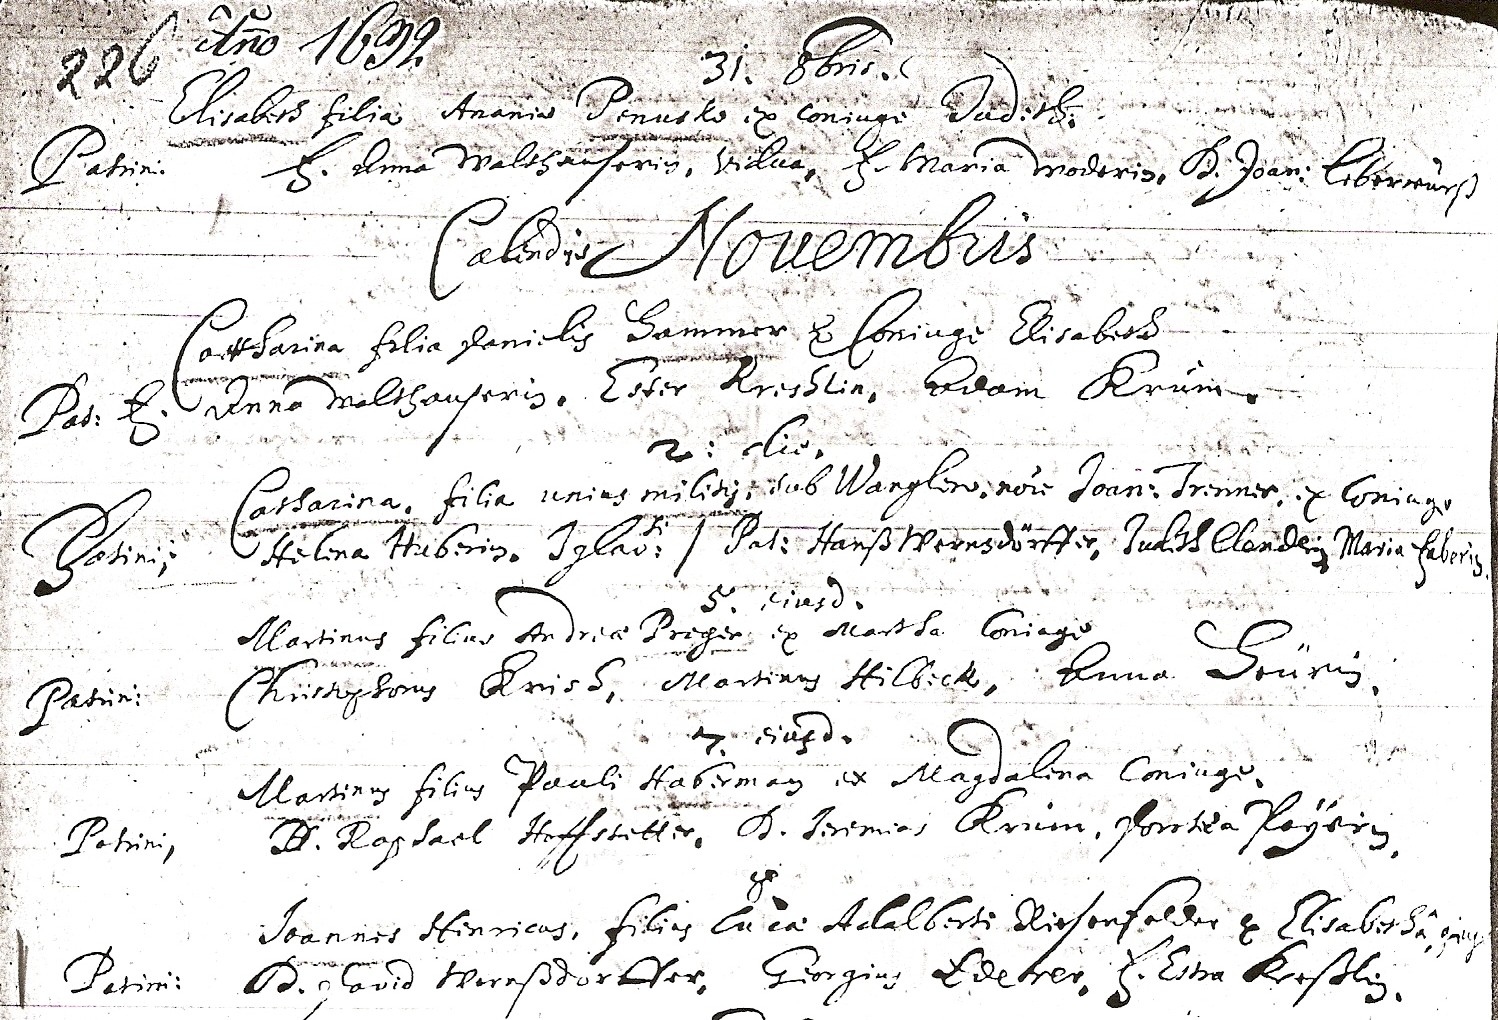 226 Año 1692.
31. 8bris.
Elisabeth filia Ananiæ Penusko ex Coniuge Judith:
Patrini: F. Anna Walthauserin, vidua, F. Maria Moderin, D. Joan: Leberwürst
Calendis Novembris
Catharina filia Danielis Hammer ex Coniuge Elisabeth
Pat: F. Anna Walthauserin. Ester Kreshlin, Adam Krum.
2: die.
Catharina, filia unius militis, sub Wanglero, nõie Joan: Trenner, ex Coniuge
Patrini: Helena Huberin. Pat: Hanß Wernsdörffer, Judith Maria Faberin.
5. eiusd.
Martinus filius Andreæ Preger ex Martha Coniuge
Patrini: Christophorus Krisch, Martinus Hilbick, Anna
7. eiusd.
Martinus filius Pauli Haberman ex Magdalena Coniuge.
Patrini, D. Raphael Hoffstetter, D. Jeremias Krum, Dorotea Payerin.
8
Joannes Henricus, filius Lucæ Adalberti Riesenfelder ex Elisabethâ
Patrini: D. David Wernßdorffer, Georgius Ederer, F. Estra Kreßlin.